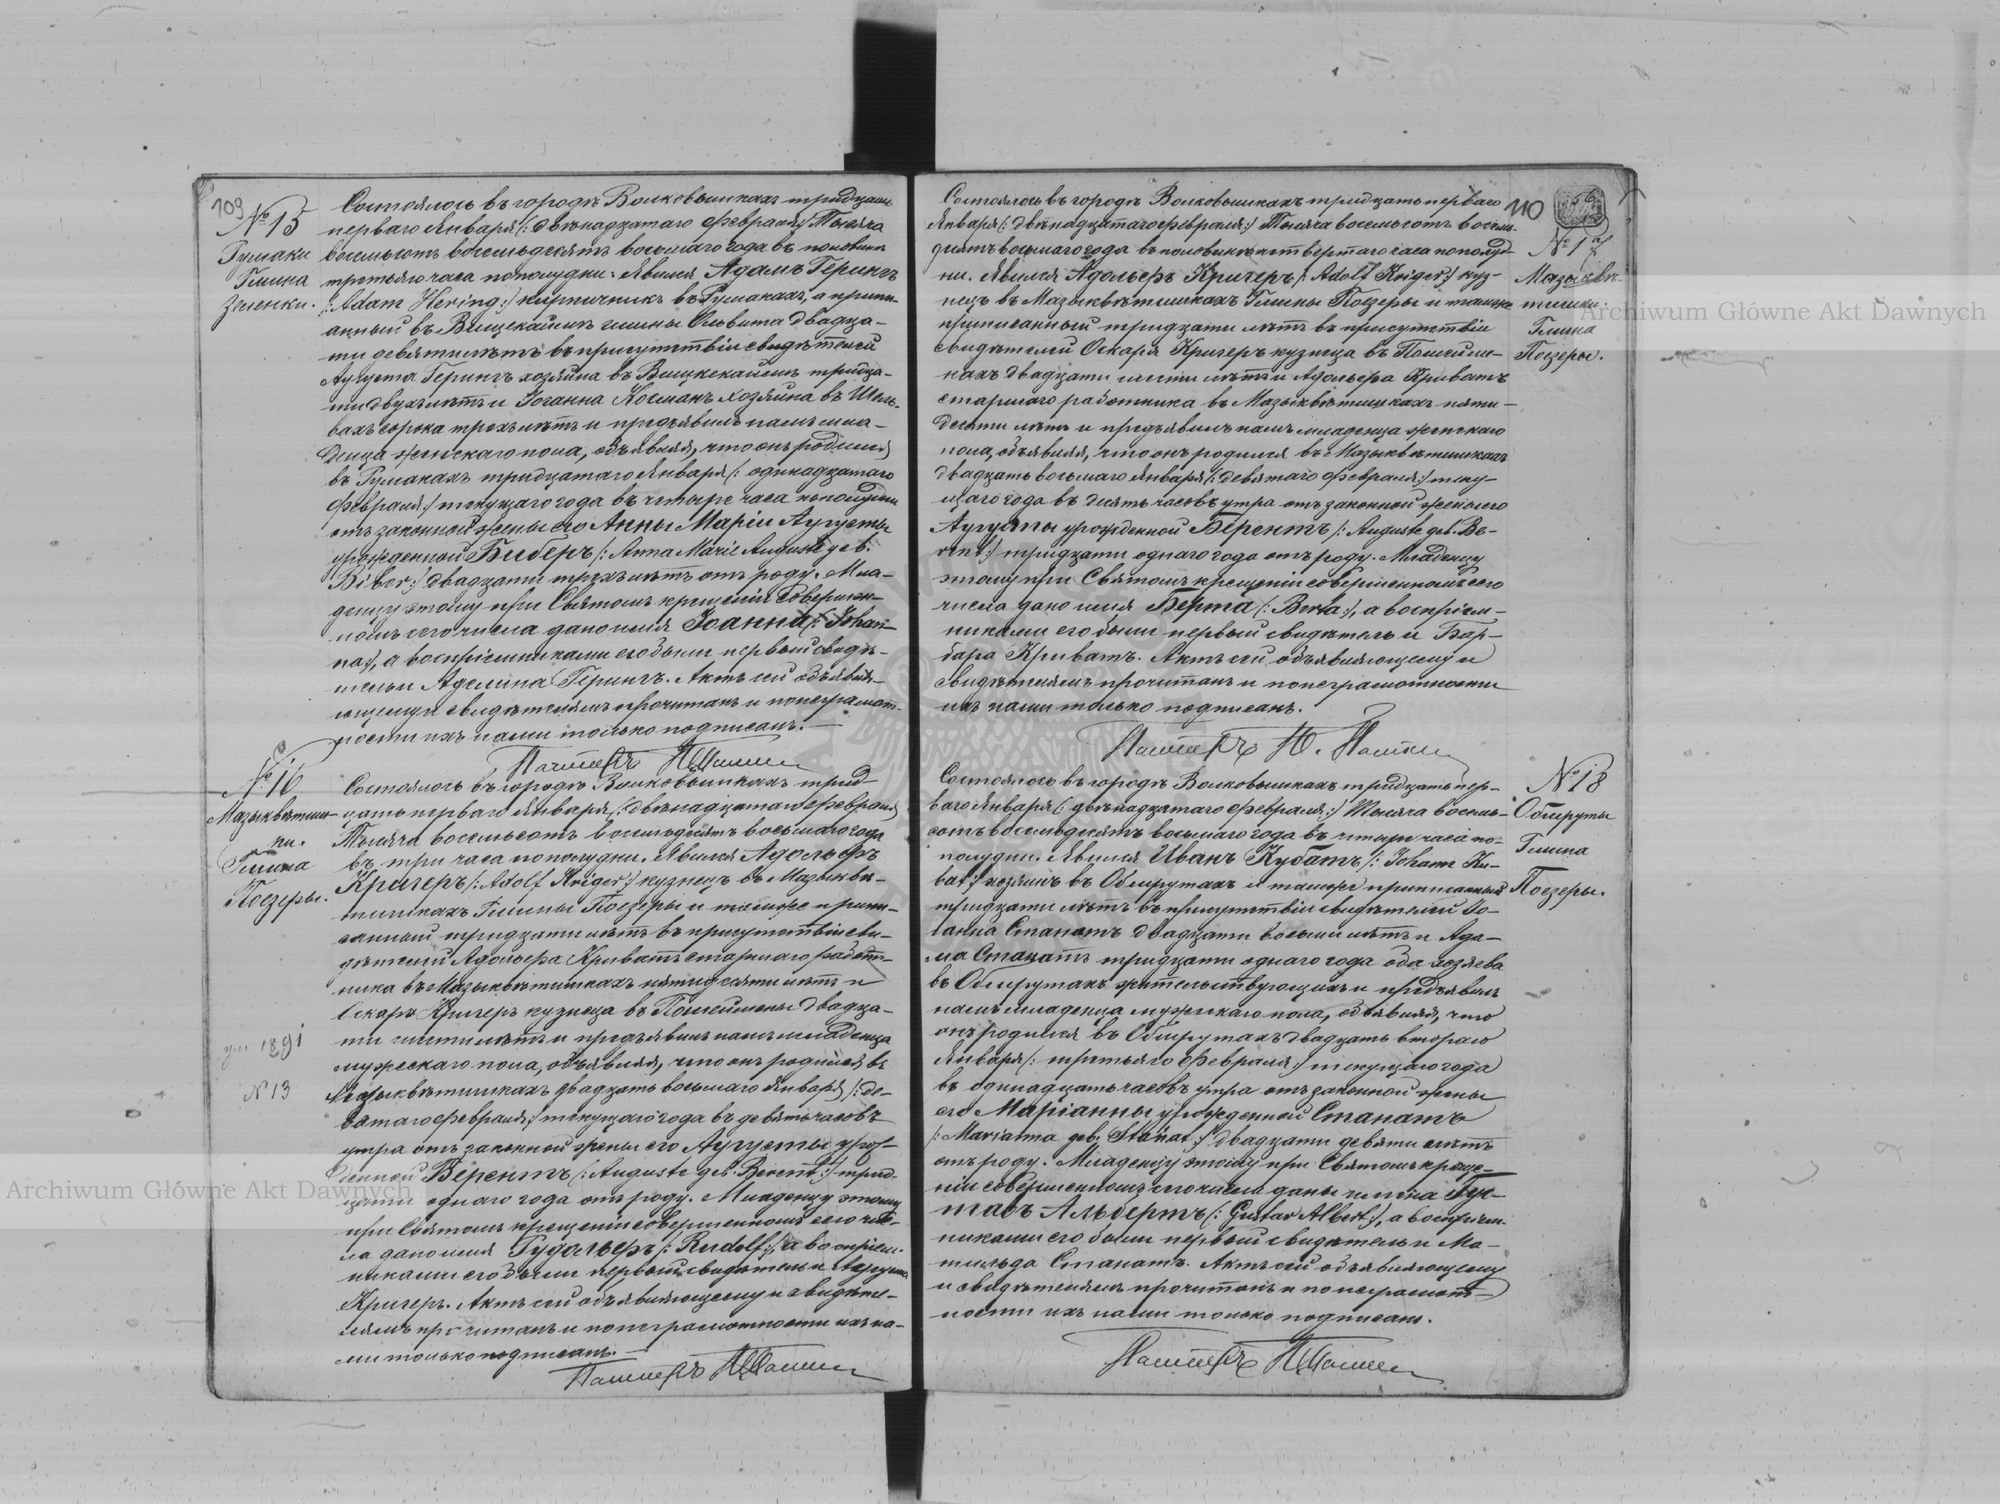 109
№ 15
Гумаки
Гмина
Зеленки.
Состоялось въ городѣ Волковышкахъ тридцать
перваго Января /: двѣнадцатаго Февраля :/ Тысяча
восемьсотъ восемьдесятъ восьмаго года въ половинѣ
третьяго часа пополудни. Явился Адамъ Герингъ
/: Adam Hering :/ кирпичникъ въ Гумакахъ, а припи-
санный въ гмины Ольвита двадца-
ти девяти лѣтъ въ присутствіи свидѣтелей
Августа Герингъ хозяина въ тридца-
ти двухъ лѣтъ и Іоганна хозяина въ Шель-
вахъ сорока трехъ лѣтъ и предъявилъ намъ мла-
денца женскаго пола, объявляя, что онъ родился
въ Гумакахъ тридцатаго Января /: одинадцатаго
Февраля :/ текущаго года въ четыре часа пополудни
отъ законной жены его Анны Маріи Августы
урожденной Биберъ /: Anna Marie Auguste geb.
Biber :/ двадцати трехъ лѣтъ отъ роду. Мла-
денцу этому при Святомъ крещеніи совершен-
номъ сего числа дано имя Іоанна /: Johan-
na :/, а воспріемниками его были первый свидѣ-
тель и Аделина Герингъ. Актъ сей объявля-
ющему и свидѣтелямъ прочитанъ и по неграмот-
ности ихъ нами только подписанъ.
Пасторъ
№ 16
Мазыквѣтиш-
ки.
Гмина
Поезеры.
ум 1891
N 13
Состоялось въ городѣ Волковышкахъ трид-
цать перваго Января /: двѣнадцатаго Февраля
Тысяча восемьсотъ восемьдесятъ восьмаго года
въ три часа пополудни. Явился Адольфъ
Кригеръ /: Adolf Kriger :/ кузнецъ въ Мазыквѣ-
тишкахъ Гмины Поезеры и тамже припи-
санный тридцати лѣтъ въ присутствіи сви-
дѣтелей Адольфа Криватъ старшаго работ-
ника въ Мазыквѣтишкахъ пятидесяти лѣтъ и
Оскаръ Кригеръ кузнеца въ двадца-
ти шести лѣтъ и предъявилъ намъ младенца
мужескаго пола, объявляя, что онъ родился въ
Мазыквѣтишкахъ двадцать восьмаго Января /: де-
вятаго Февраля :/ текущаго года въ девять часовъ
утра отъ законной жены его Августы урож-
денной Берентъ /: Auguste geb. Berent :/ трид-
цати одного года отъ роду. Младенцу этому
при Святомъ крещеніи совершенномъ сего чис-
ла дано имя Рудольфъ /: Rudolf :/, а воспріем-
никами его были первый свидѣтель и Августа
Кригеръ. Актъ сей объявляющему и свидѣте-
лямъ прочитанъ и по неграмотности ихъ на-
ми только подписанъ.
Пасторъ
110
56
№ 17
Мазыквѣ-
тишки.
Гмина
Поезеры.
Состоялось въ городѣ Волковышкахъ тридцать перваго
Января /: двѣнадцатаго Февраля :/ Тысяча восемьсотъ восемь-
десятъ восьмаго года въ половинѣ четвертаго часа пополуд-
ни. Явился Адольфъ Кригеръ /: Adolf Kriger :/ куз-
нецъ въ Мазыквѣтишкахъ Гмины Поезеры и тамже
приписанный тридцати лѣтъ въ присутствіи
свидѣтелей Оскара Кригеръ кузнеца въ
двадцати шести лѣтъ и Адольфа Криватъ
старшаго работника въ Мазыквѣтишкахъ пяти-
десяти лѣтъ и предъявилъ намъ младенца женскаго
пола, объявляя, что онъ родился въ Мазыквѣтишкахъ
двадцать восьмаго Января /: девятаго Февраля :/ теку-
щаго года въ десять часовъ утра отъ законной жены его
Августы урожденной Берентъ /: Auguste geb. Be-
rent :/ тридцати одного года отъ роду. Младенцу
этому при Святомъ крещеніи совершенномъ сего
числа дано имя Берта /: Berta :/, а воспріем-
никами его были первый свидѣтель и Бар-
бара Криватъ. Актъ сей объявляющему и
свидѣтелямъ прочитанъ и по неграмотности
ихъ нами только подписанъ.
Пасторъ
№ 18
Обшруты
Гмина
Поезеры.
Состоялось въ городѣ Волковышкахъ тридцать пер-
ваго Января /: двѣнадцатаго Февраля :/ Тысяча восемь-
сотъ восемьдесятъ восьмаго года въ четыре часа по-
полудни. Явился Иванъ Кубатъ /: Johann Ku-
bat :/ хозяинъ въ Обшрутахъ и тамже приписанный
тридцати лѣтъ въ присутствіи свидѣтелей Іо-
ганна Станатъ двадцати восьми лѣтъ и Ада-
ма Станатъ тридцати одного года оба хозяева
въ Обшрутахъ жительствующихъ и предъявилъ
намъ младенца мужскаго пола, объявляя, что
онъ родился въ Обшрутахъ двадцать втораго
Января /: третьяго Февраля :/ текущаго года
въ одинадцать часовъ утра отъ законной жены
его Маріанны урожденной Станатъ
/: Marianna geb. Stanat :/ двадцати девяти лѣтъ
отъ роду. Младенцу этому при Святомъ креще-
ніи совершенномъ сего числа даны имена Гус-
тавъ Альбертъ /: Gustav Albert :/, а воспріем-
никами его были первый свидѣтель и Ма-
тильда Станатъ. Актъ сей объявляющему
и свидѣтелямъ прочитанъ и по неграмот-
ности ихъ нами только подписанъ.
Пасторъ
Archiwum Główne Akt Dawnych
Archiwum Główne Akt Dawnych